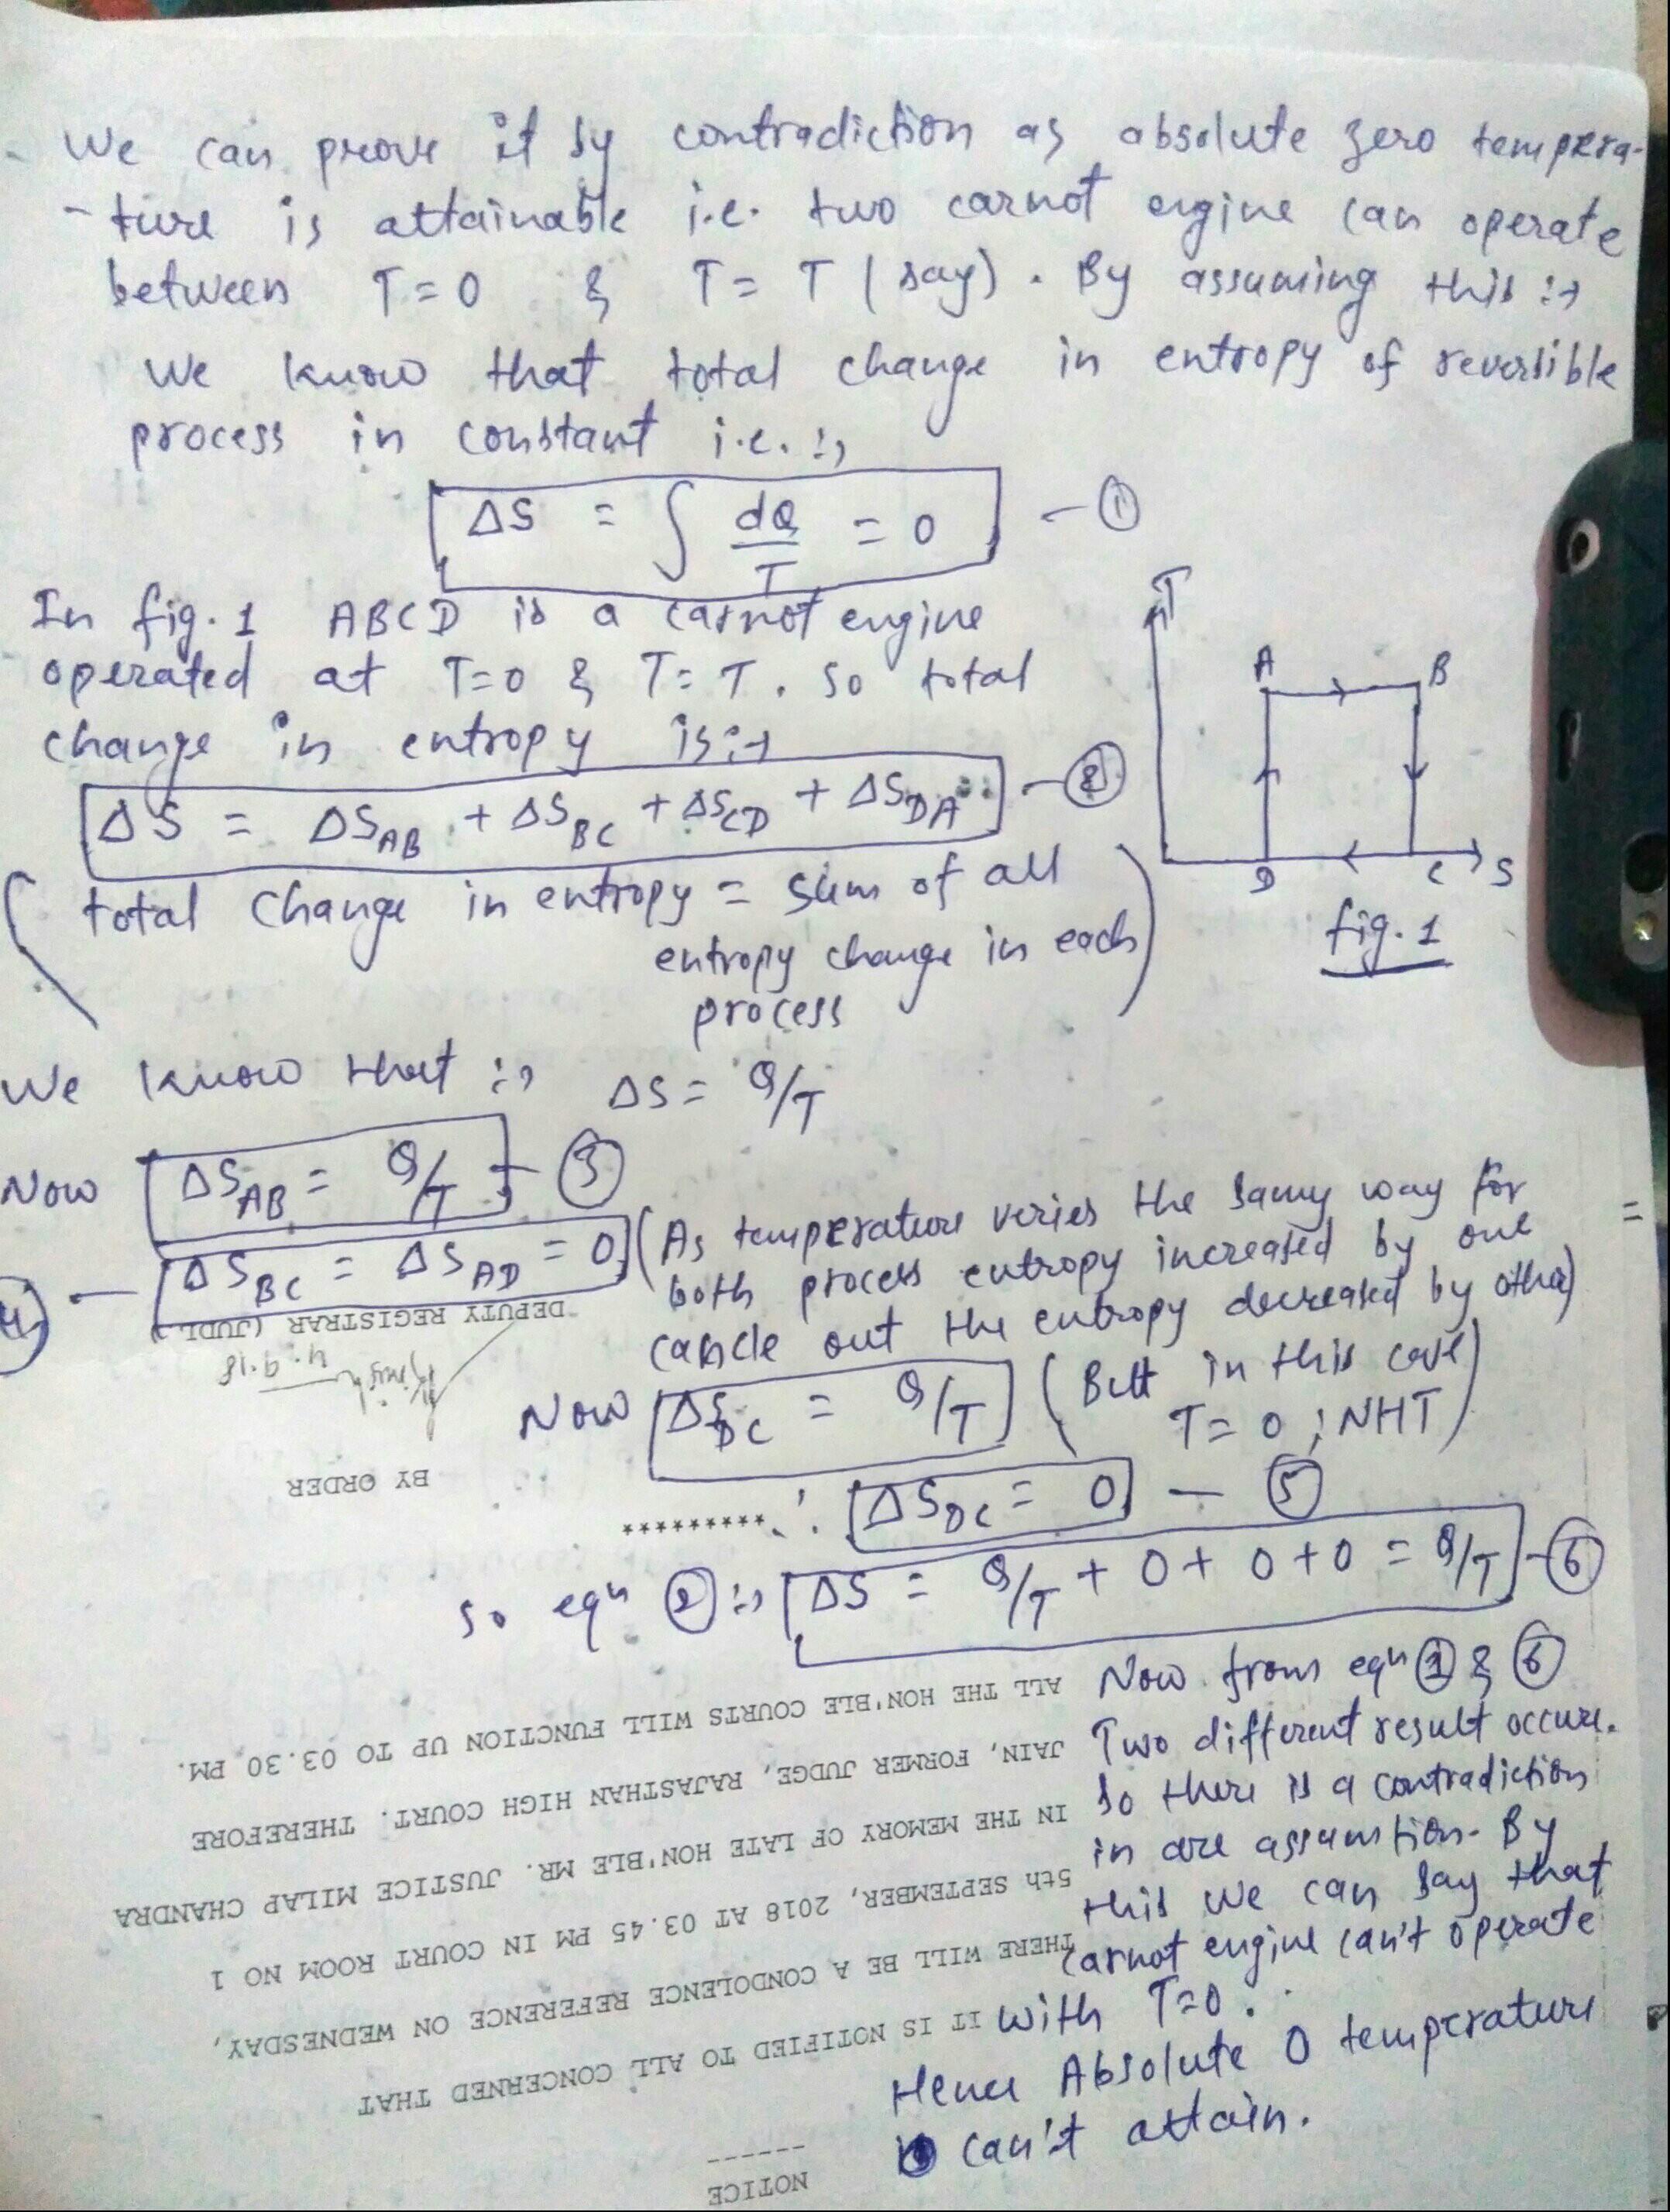 We can prove it by contradiction as absolute zero tempera-
-ture is attainable i.e. two carnot engine can operate
between T=0 & T=T (say). By assuming this :→
We know that total change in entropy of reversible
process in constant i.e. :→
ΔS = ∫ dQ/T = 0 — ①
In fig. 1 ABCD is a carnot engine
operated at T=0 & T=T. So total
change in entropy is :→
ΔS = ΔS_AB + ΔS_BC + ΔS_CD + ΔS_DA — ②
(total change in entropy = sum of all
entropy change in each
process)
T
A B
D C S
fig. 1
We know that :→ ΔS = Q/T
Now ΔS_AB = Q/T — ③
④ — ΔS_BC = ΔS_AD = 0 (As temperature veries the samy way for
both process entropy increased by one
cancle out the entropy decreased by other)
Now ΔS_DC = Q/T (But in this case
T=0 ; NHT)
∴ ΔS_DC = 0 — ⑤
so eqn ② :→ ΔS = Q/T + 0 + 0 + 0 = Q/T — ⑥
Now from eqn ① & ⑥
Two different result occure.
So there is a contradiction
in are assumtion. By
this we can say that
carnot engine can't operate
with T=0.
Hence Absolute 0 temperature
can't attain.
NOTICE
------
IT IS NOTIFIED TO ALL CONCERNED THAT
THERE WILL BE A CONDOLENCE REFERENCE ON WEDNESDAY,
5th SEPTEMBER, 2018 AT 03.45 PM IN COURT ROOM NO 1
IN THE MEMORY OF LATE HON'BLE MR. JUSTICE MILAP CHANDRA
JAIN, FORMER JUDGE, RAJASTHAN HIGH COURT. THEREFORE
ALL THE HON'BLE COURTS WILL FUNCTION UP TO 03.30 PM.
*********
BY ORDER
4.9.18
DEPUTY REGISTRAR (JUDL.)